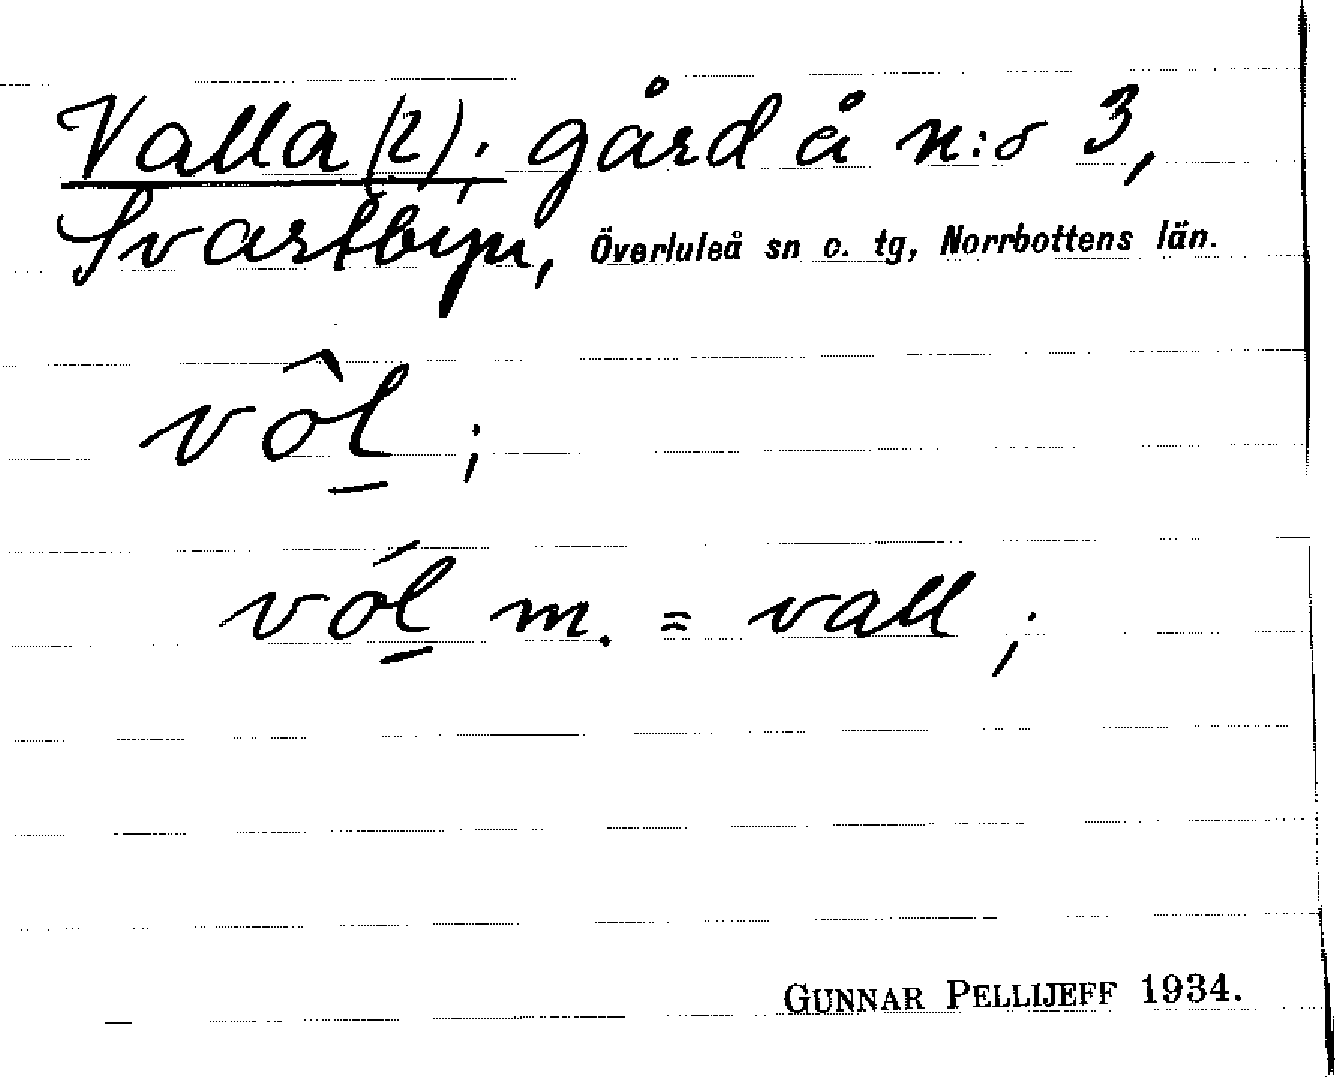 Valla (2); gård å n:o 3,
Svartbyn, Överluleå sn o. tg, Norrbottens län.
vôl̲;
vól̲ m. = vall;
GUNNAR PELLIJEFF 1934.